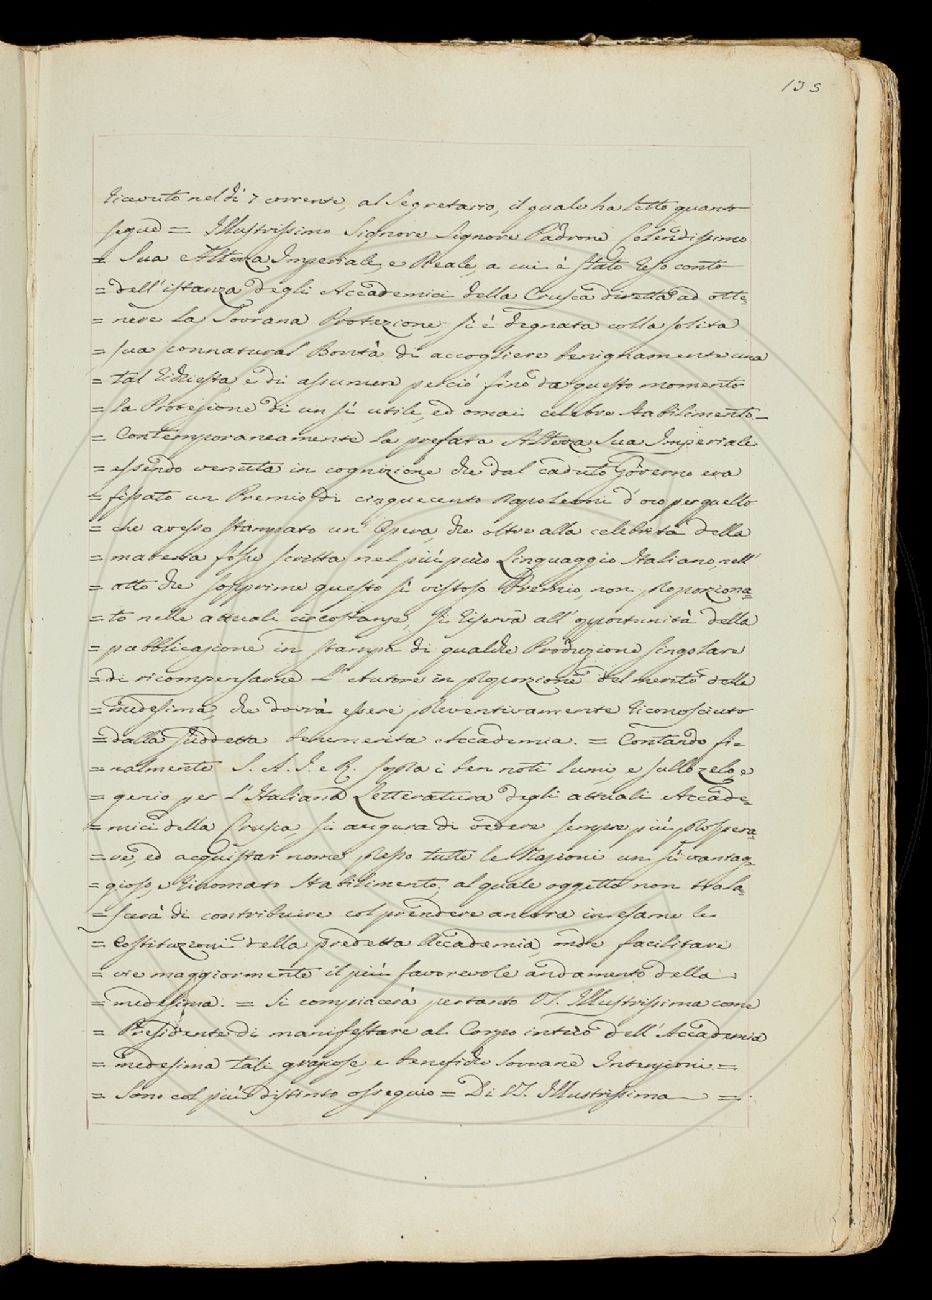 135
ricevuto nel dì 7 corrente, al Segretario, il quale ha letto quanto
segue = Illustrissimo Signore Signore Padrone Colendissimo
= Sua Altezza Imperiale, e Reale, a cui è stato reso conto
= dell'istanza degli Accademici della Crusca diretta ad otte-
= nere la Sovrana Protezione, si è degnata colla solita
= sua connatural Bontà di accogliere benignamente una
= tal richiesta e di assumere perciò fino da questo momento
= la Protezione di un sì utile, ed omai celebre stabilimento_
= Contemporaneamente la prefata Altezza Sua Imperiale
= essendo venuta in cognizione che dal caduto Governo era
= fissato un Premio di cinquecento Napoleoni d'oro per quello
= che avesse stampato un'Opera, che oltre alla celebrità della
= materia fosse scritta nel più puro Linguaggio Italiano, nell'
= atto che sopprime questo sì vistoso Premio, non proporziona=
= to nelle attuali circostanze, si riserva all'opportunità della
= pubblicazione in stampa di qualche Produzione singolare
= di ricompensarne l'Autore in proporzione del merito della
= medesima, che dovrà essere preventivamente riconosciuto
= dalla suddetta benemerita Accademia. = Contando fi=
= nalmente S. A. I. e R. sopra i ben noti lumi, e sullo zelo, e
= genio per l'Italiana Letteratura degli attuali Accade=
= mici della Crusca si augura di vedere sempre più prospera=
= re, ed acquistar nome presso tutte le Nazioni un sì vantag=
= gioso, e rinomato stabilimento; al quale oggetto non trala=
= scerà di contribuire col prendere ancora in esame le
= Costituzioni della predetta Accademia, onde facilitare
= vie maggiormente il più favorevole andamento della
= medesima. = Si compiacerà pertanto VS. Illustrissima come
= Presidente di manifestare al Corpo intero dell'Accademia
= medesima tali graziose, e benefiche Sovrane Intenzioni =
= Sono col più distinto ossequio = Di VS. Illustrissima =